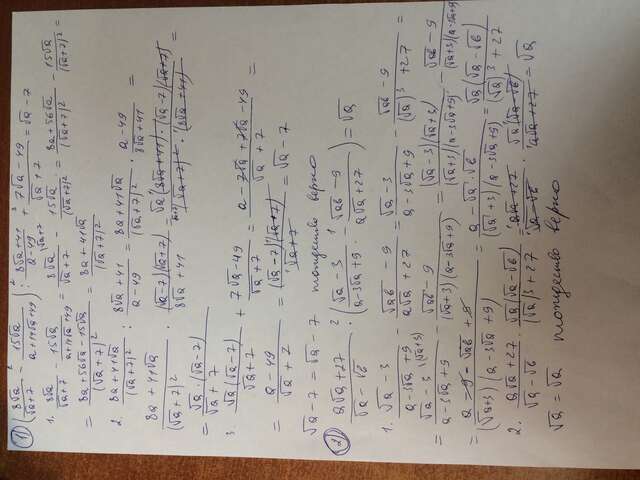 1) (8√a/(√a+7) - 15√a/(a+14√a+49)) : (8√a+41)/(a-49) + (7√a-49)/(√a+7) = √a-7
1. 8√a/(√a+7) - 15√a/(a+14√a+49) = 8√a/(√a+7) - 15√a/(√a+7)² = (8a+56√a)/(√a+7)² - 15√a/(√a+7)² =
= (8a+56√a-15√a)/(√a+7)² = (8a+41√a)/(√a+7)²
2. (8a+41√a)/(√a+7)² : (8√a+41)/(a-49) = (8a+41√a)/(√a+7)² · (a-49)/(8√a+41) =
(8a+41√a)/(√a+7)² · (√a-7)(√a+7)/(8√a+41) = √a(8√a+41)·(√a-7)(√a+7)/((√a+7)²·(8√a+41)) =
= √a·(√a-7)/(√a+7)
3. √a(√a-7)/(√a+7) + (7√a-49)/(√a+7) = (a-7√a+7√a-49)/(√a+7) =
= (a-49)/(√a+7) = (√a-7)(√a+7)/(√a+7) = √a-7
√a-7 = √a-7 тождество верно
2) (a√a+27)/(√a-√b) · ((√a-3)/(a-3√a+9) - (√ab-9)/(a√a+27)) = √a
1. (√a-3)/(a-3√a+9) - (√ab-9)/(a√a+27) = (√a-3)/(a-3√a+9) - (√ab-9)/((√a)³+27) =
= (√a-3)/(a-3√a+9) - (√ab-9)/((√a+3)(a-3√a+9)) = (√a-3)(√a+3)/((√a+3)(a-3√a+9)) - (√ab-9)/((√a+3)(a-3√a+9)) =
= (a-9-√ab+9)/((√a+3)(a-3√a+9)) = (a-√a·√b)/((√a+3)(a-3√a+9)) = √a(√a-√b)/((√a)³+27)
2. (a√a+27)/(√a-√b) · √a(√a-√b)/((√a)³+27) = (a√a+27)/(√a-√b) · √a(√a-√b)/(a√a+27) = √a
√a = √a тождество верно